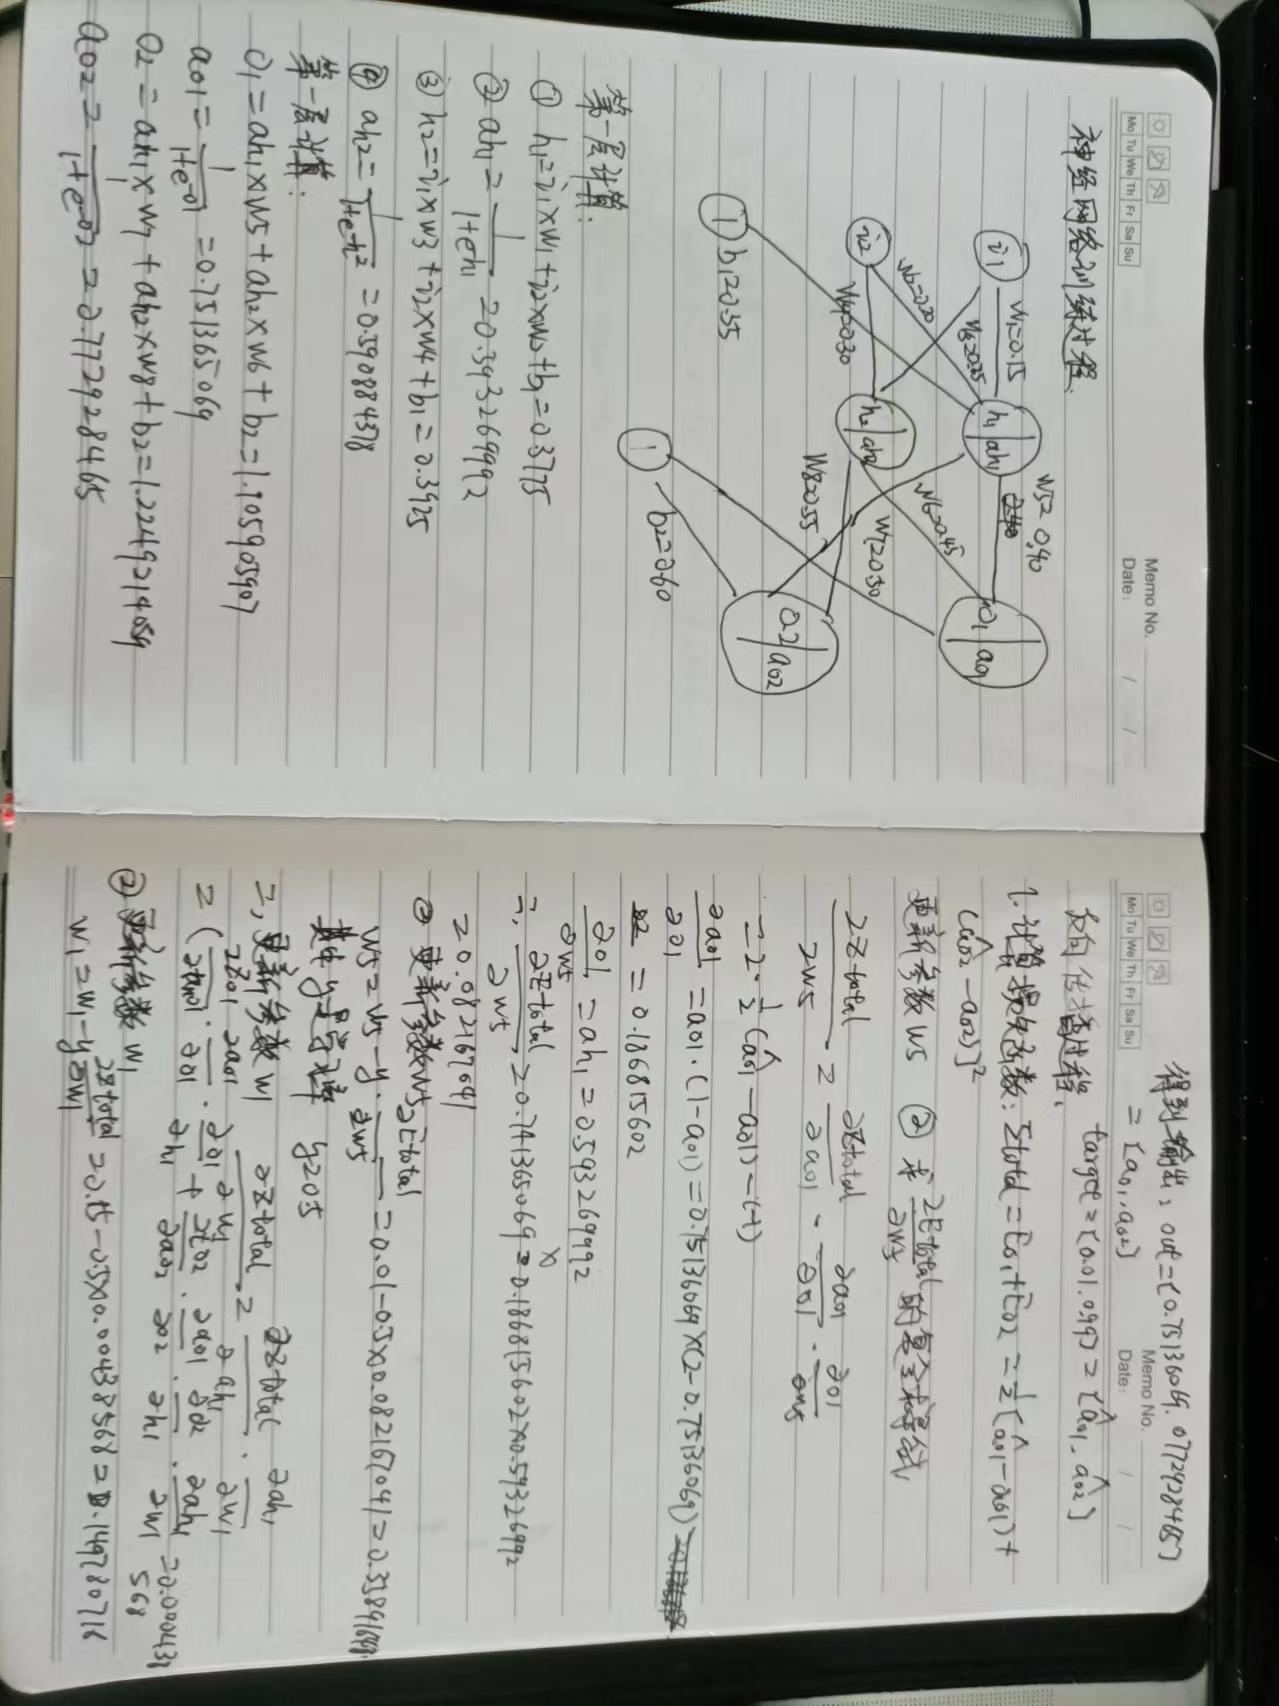 Memo No.
Mo Tu We Th Fr Sa Su
Date: / /
神经网络训练过程.
i1
w1=0.15
h1 ah1
w5=0.40
o1 ao1
w2=0.20
w3=0.25
w6=0.45
i2
w4=0.30
h2 ah2
w7=0.50
w8=0.55
o2 ao2
1 b1=0.35
1 b2=0.60
第一层计算:
① h1=i1×w1+i2×w2+b1=0.3775
② ah1=1/1+e-h1=0.593269992
③ h2=i1×w3+i2×w4+b1=0.3925
④ ah2=1/1+e-h2=0.590884378
第一层计算:
o1=ah1×w5+ah2×w6+b2=1.105905907
ao1=1/1+e-o1=0.751365069
o2=ah1×w7+ah2×w8+b2=1.2249214059
ao2=1/1+e-o2=0.772928465
Memo No.
Mo Tu We Th Fr Sa Su
Date: / /
得到输出: out=[0.75136069, 0.772928465]
=[ao1, ao2]
反向传播过程. target=[0.01, 0.99]=[âo1, âo2]
1. 计算损失函数: Etotal=Eo1+Eo2=1/2(âo1-ao1)+
(âo2-ao2)]²
更新参数w5 ② 求∂Etotal/∂w5的复合求导式
∂Etotal/∂w5=∂Etotal/∂ao1·∂ao1/∂o1·∂o1/∂w5
=2·1/2(âo1-ao1)-(-1)
∂ao1/∂o1=ao1·(1-ao1)=0.75136069×(2-0.75136069)
=0.186815602
∂o1/∂w5=ah1=0.593269992
∴ ∂Etotal/∂w5=0.741365069×0.186815602×0.593269992
=0.082167041
② 更新参数w5
w5=w5-y·∂Etotal/∂w5=0.01-0.5×0.082167041=0.35891648
其中y是学习率 y=0.5
二, 更新参数w1 ∂Etotal/∂w1=∂Etotal/∂ah1·∂ah1/∂w1
② 更新参数w1
w1=w1-y∂Etotal/∂w1=0.15-0.5×0.000438568=0.149780716